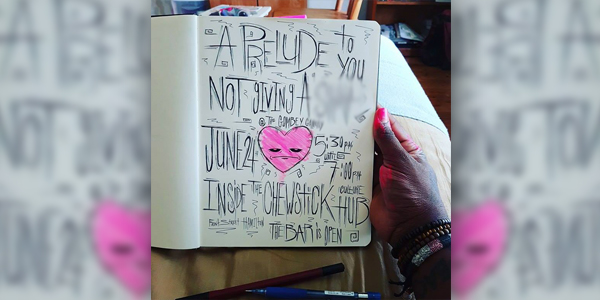 A PRELUDE to YOU
NOT giViNG A
@ THE GOMBEY
JUNE 24 5:30pm
UNTIL
7:00pm
INSIDE THE CHEWSTICK CULTURE HUB
FRONT STREET HAMILTON
THE BAR is OPEN